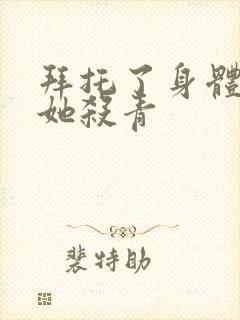 拜托了身體
她殺青
裴特助